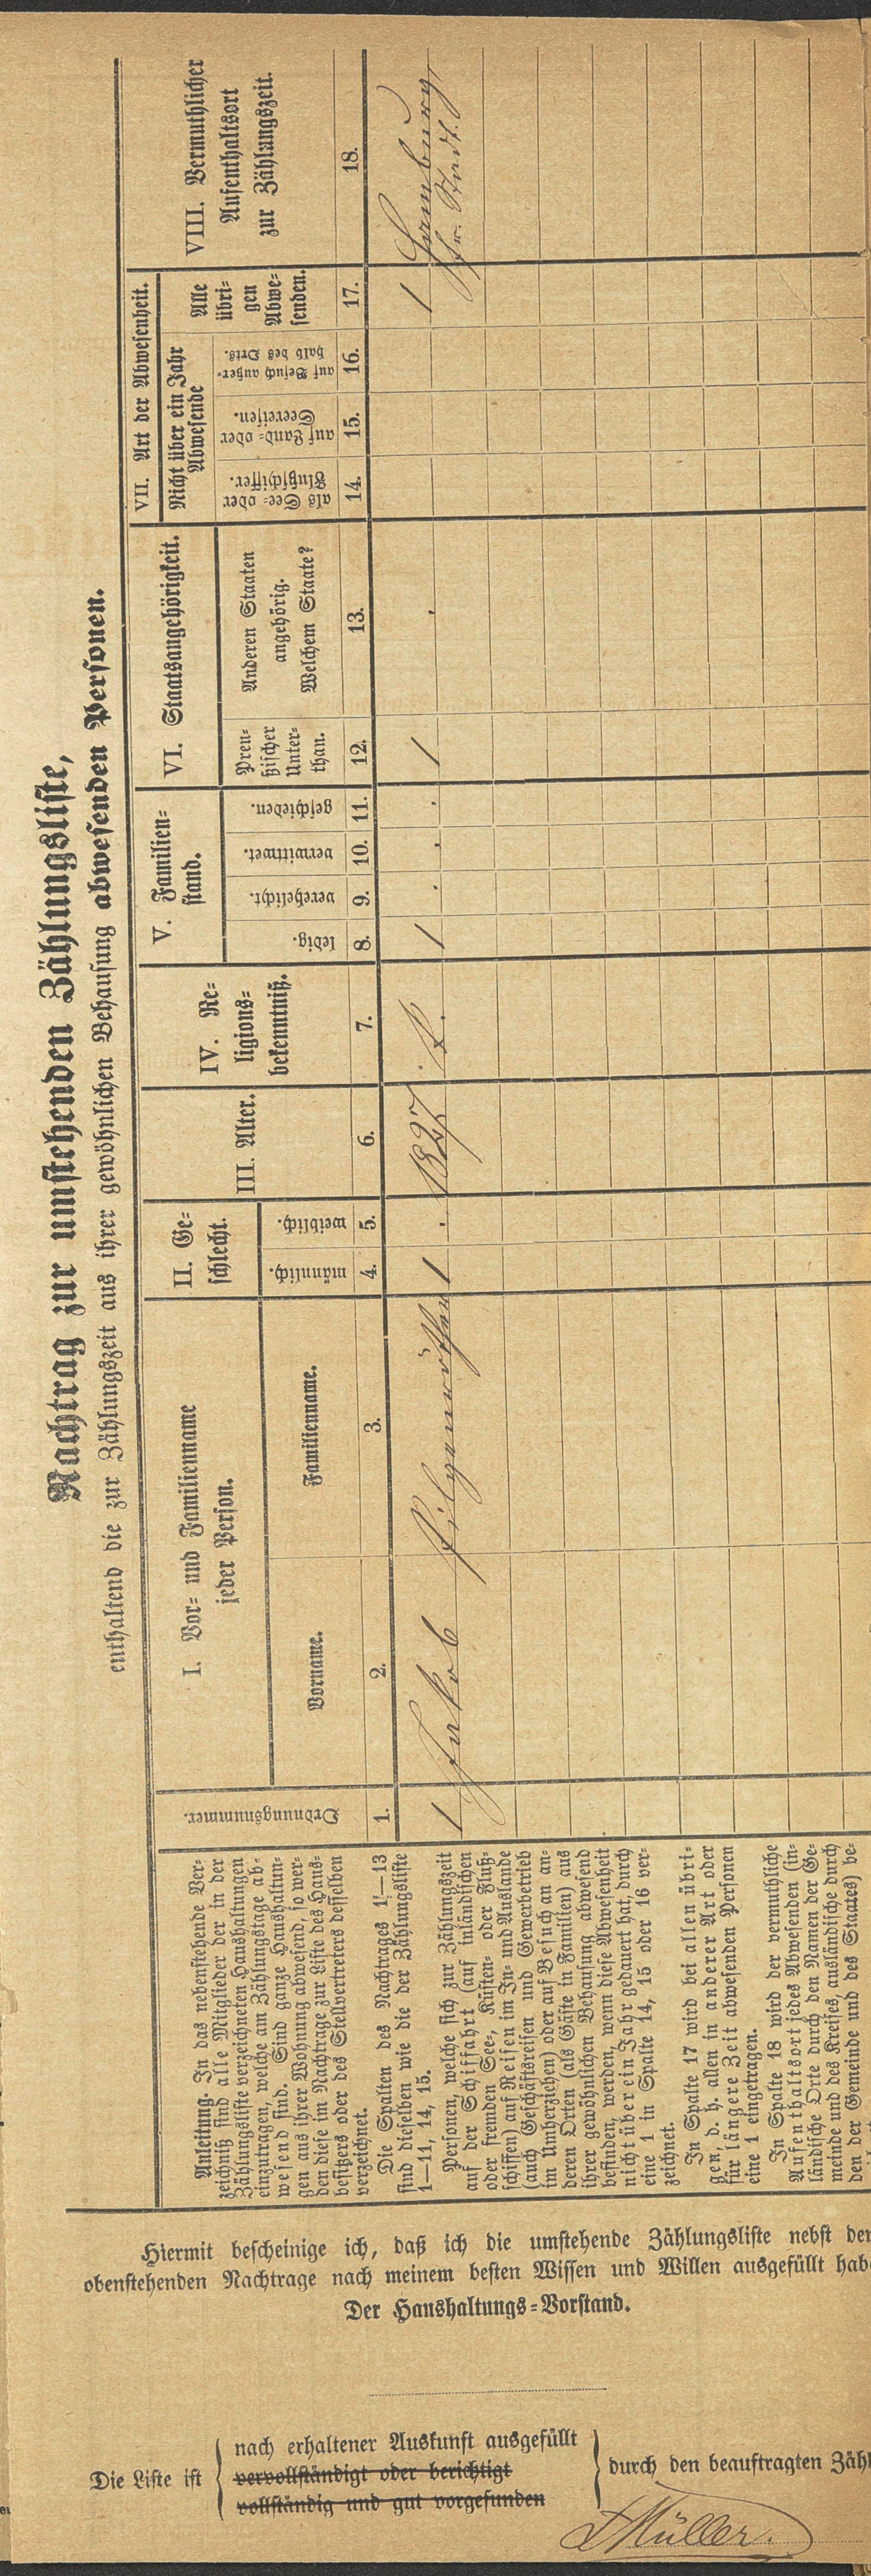 Nachtrag zur umstehenden Zählungsliste,
enthaltend die zur Zählungszeit aus ihrer gewöhnlichen Behausung abwesenden Personen.
Anleitung. In das nebenstehende Ver-
zeichniß sind alle Mitglieder der in der
Zählungsliste verzeichneten Haushaltungen
einzutragen, welche am Zählungstage ab-
wesend sind. Sind ganze Haushaltun-
gen aus ihrer Wohnung abwesend, so wer-
den diese im Nachtrage zur Liste des Haus-
besitzers oder des Stellvertreters desselben
verzeichnet.
Die Spalten des Nachtrages 1—13
sind dieselben wie die der Zählungsliste
1—11, 14, 15.
Personen, welche sich zur Zählungszeit
auf der Schiffahrt (auf inländischen
oder fremden See-, Küsten- oder Fluß-
schiffen) auf Reisen im In- und Auslande
(auch Geschäftsreisen und Gewerbetrieb
im Umherziehen) oder auf Besuch an an-
deren Orten (als Gäste in Familien) aus
ihrer gewöhnlichen Behausung abwesend
befinden, werden, wenn diese Abwesenheit
nicht über ein Jahr gedauert hat, durch
eine 1 in Spalte 14, 15 oder 16 ver-
zeichnet.
In Spalte 17 wird bei allen übri-
gen, d. h. allen in anderer Art oder
für längere Zeit abwesenden Personen
eine 1 eingetragen.
In Spalte 18 wird der vermuthliche
Aufenthaltsort jedes Abwesenden (in-
ländische Orte durch den Namen der Ge-
meinde und des Kreises, ausländische durch
den der Gemeinde und des Staates) be-
Ordnungsnummer.
I. Vor- und Familienname
jeder Person.
Vorname.
Familienname.
II. Ge-
schlecht.
männlich.
weiblich.
III. Alter.
IV. Re-
ligions-
bekenntniß.
V. Familien-
stand.
ledig.
verehelicht.
verwittwet.
geschieden.
VI. Staatsangehörigkeit.
Preu-
ßischer
Unter-
than.
Anderen Staaten
angehörig.
Welchem Staate?
VII. Art der Abwesenheit.
Nicht über ein Jahr
Abwesende
als See- oder
Flußschiffer.
auf Land- oder
Seereisen.
auf Besuch außer-
halb des Orts.
Alle
übri-
gen
Abwe-
senden.
VIII. Vermuthlicher
Aufenthaltsort
zur Zählungszeit.
1. 2. 3. 4. 5. 6. 7. 8. 9. 10. 11. 12. 13. 14. 15. 16. 17. 18.
1 Jakob Hilgenröther 1 . 1827 . L. 1 . . . 1 . 1 Hamburg,
fr. Stadt.
Hiermit bescheinige ich, daß ich die umstehende Zählungsliste nebst dem
obenstehenden Nachtrage nach meinem besten Wissen und Willen ausgefüllt habe
Der Haushaltungs-Vorstand.
Die Liste ist
nach erhaltener Auskunft ausgefüllt
vervollständigt oder berichtigt
vollständig und gut vorgefunden
durch den beauftragten Zähl
Müller.